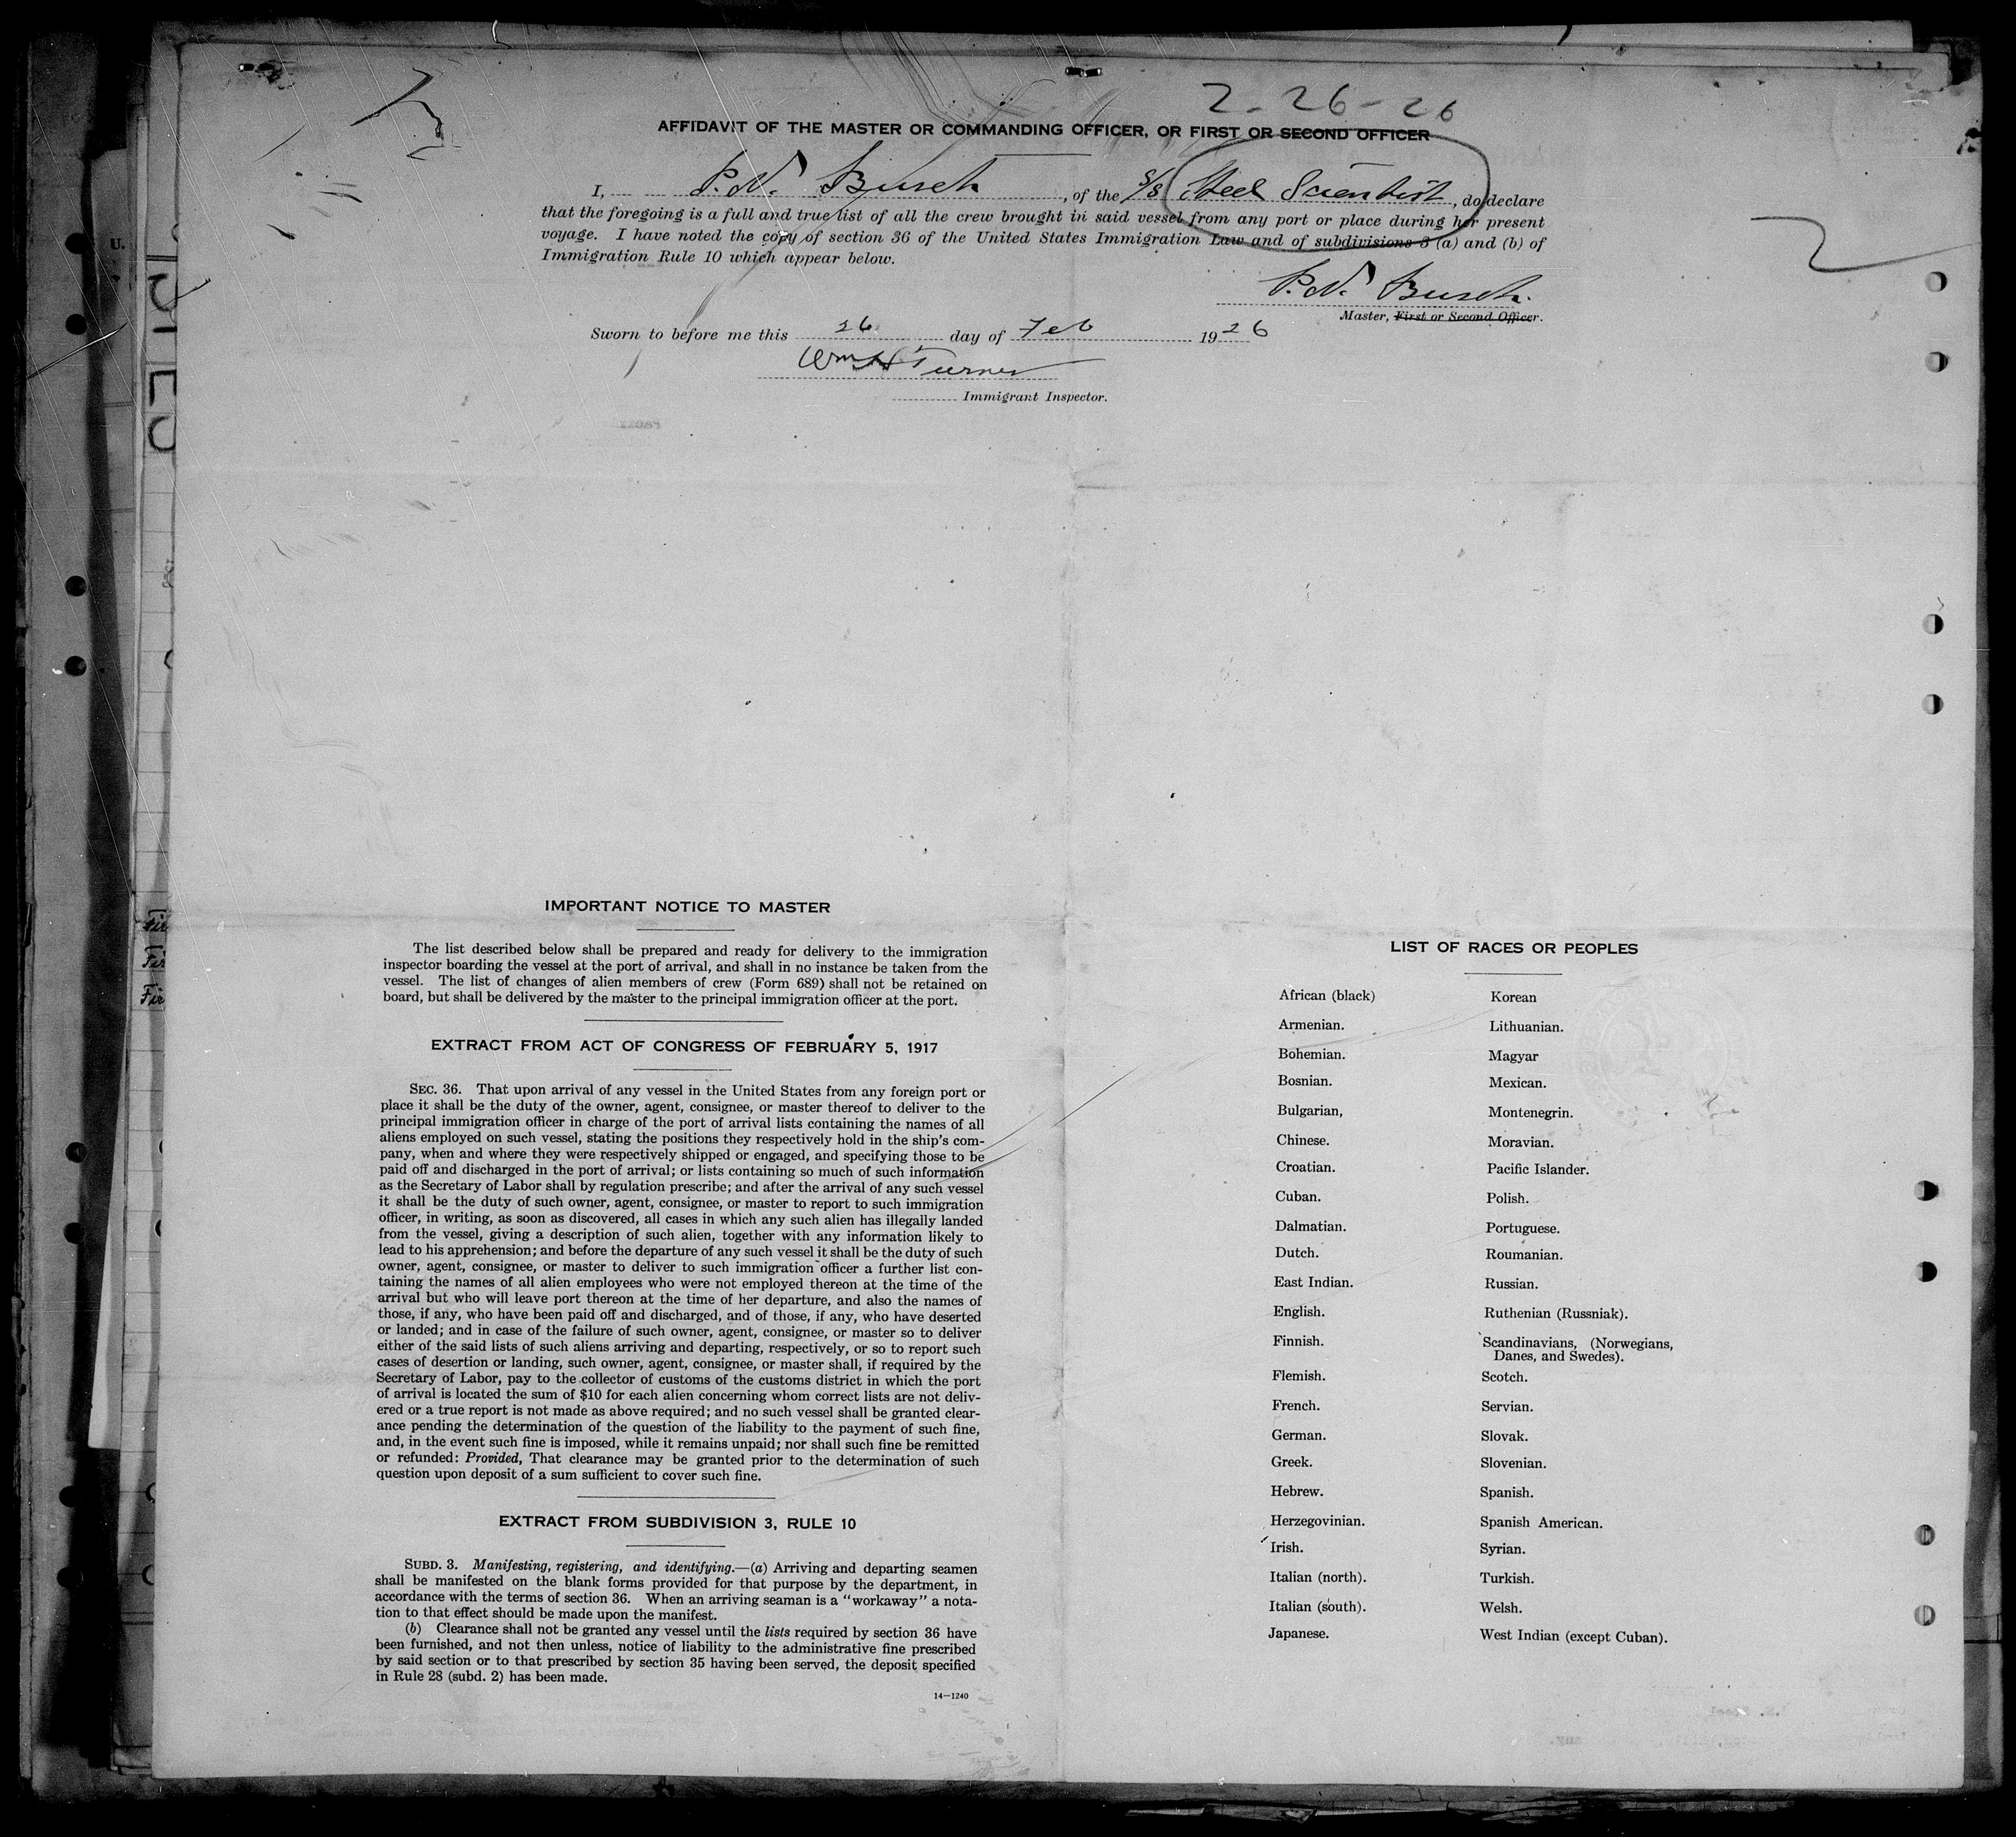 2-26-26
AFFIDAVIT OF THE MASTER OR COMMANDING OFFICER, OR FIRST OR SECOND OFFICER
I, P. N. Busch, of the S/S Steel Scientist, do declare
that the foregoing is a full and true list of all the crew brought in said vessel from any port or place during her present
voyage. I have noted the copy of section 36 of the United States Immigration Law and of subdivisions 3 (a) and (b) of
Immigration Rule 10 which appear below.
P. N. Busch.
Master, First or Second Officer.
Sworn to before me this 26 day of Feb 1926
Wm H Turner
Immigrant Inspector.
IMPORTANT NOTICE TO MASTER
The list described below shall be prepared and ready for delivery to the immigration
inspector boarding the vessel at the port of arrival, and shall in no instance be taken from the
vessel. The list of changes of alien members of crew (Form 689) shall not be retained on
board, but shall be delivered by the master to the principal immigration officer at the port.
EXTRACT FROM ACT OF CONGRESS OF FEBRUARY 5, 1917
SEC. 36. That upon arrival of any vessel in the United States from any foreign port or
place it shall be the duty of the owner, agent, consignee, or master thereof to deliver to the
principal immigration officer in charge of the port of arrival lists containing the names of all
aliens employed on such vessel, stating the positions they respectively hold in the ship's com-
pany, when and where they were respectively shipped or engaged, and specifying those to be
paid off and discharged in the port of arrival; or lists containing so much of such information
as the Secretary of Labor shall by regulation prescribe; and after the arrival of any such vessel
it shall be the duty of such owner, agent, consignee, or master to report to such immigration
officer, in writing, as soon as discovered, all cases in which any such alien has illegally landed
from the vessel, giving a description of such alien, together with any information likely to
lead to his apprehension; and before the departure of any such vessel it shall be the duty of such
owner, agent, consignee, or master to deliver to such immigration officer a further list con-
taining the names of all alien employees who were not employed thereon at the time of the
arrival but who will leave port thereon at the time of her departure, and also the names of
those, if any, who have been paid off and discharged, and of those, if any, who have deserted
or landed; and in case of the failure of such owner, agent, consignee, or master so to deliver
either of the said lists of such aliens arriving and departing, respectively, or so to report such
cases of desertion or landing, such owner, agent, consignee, or master shall, if required by the
Secretary of Labor, pay to the collector of customs of the customs district in which the port
of arrival is located the sum of $10 for each alien concerning whom correct lists are not deliv-
ered or a true report is not made as above required; and no such vessel shall be granted clear-
ance pending the determination of the question of the liability to the payment of such fine,
and, in the event such fine is imposed, while it remains unpaid; nor shall such fine be remitted
or refunded: Provided, That clearance may be granted prior to the determination of such
question upon deposit of a sum sufficient to cover such fine.
EXTRACT FROM SUBDIVISION 3, RULE 10
SUBD. 3. Manifesting, registering, and identifying.—(a) Arriving and departing seamen
shall be manifested on the blank forms provided for that purpose by the department, in
accordance with the terms of section 36. When an arriving seaman is a "workaway" a nota-
tion to that effect should be made upon the manifest.
(b) Clearance shall not be granted any vessel until the lists required by section 36 have
been furnished, and not then unless, notice of liability to the administrative fine prescribed
by said section or to that prescribed by section 35 having been served, the deposit specified
in Rule 28 (subd. 2) has been made.
14—1240
LIST OF RACES OR PEOPLES
African (black)
Armenian.
Bohemian.
Bosnian.
Bulgarian,
Chinese.
Croatian.
Cuban.
Dalmatian.
Dutch.
East Indian.
English.
Finnish.
Flemish.
French.
German.
Greek.
Hebrew.
Herzegovinian.
Irish.
Italian (north).
Italian (south).
Japanese.
Korean
Lithuanian.
Magyar
Mexican.
Montenegrin.
Moravian.
Pacific Islander.
Polish.
Portuguese.
Roumanian.
Russian.
Ruthenian (Russniak).
Scandinavians, (Norwegians,
Danes, and Swedes).
Scotch.
Servian.
Slovak.
Slovenian.
Spanish.
Spanish American.
Syrian.
Turkish.
Welsh.
West Indian (except Cuban).